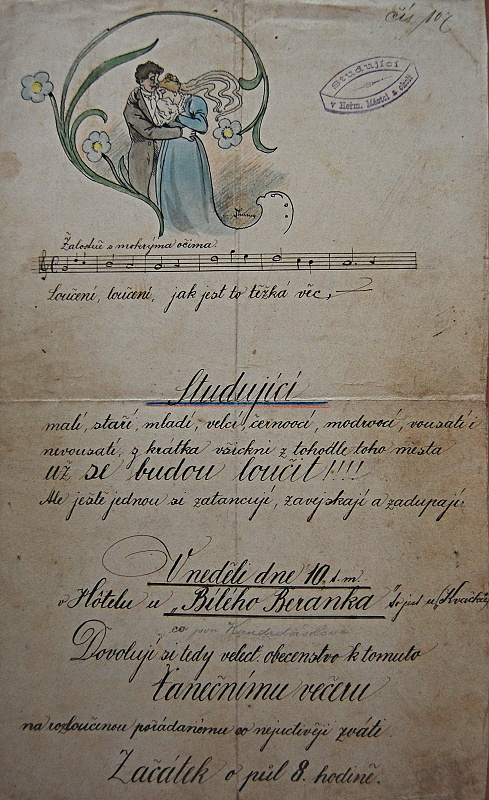 čís 107
Studující
v Heřm. Městci a okolí
Žalostně s mokrýma očima.
Loučení, loučení, jak jest to těžká věc,
Studující
malí, staří, mladí, velcí, černoocí, modroocí, vousatí i
nevousatí, z krátka všickni z tohodle toho města
už se budou loučit!!!!
Ale ještě jednou si zatancují, zavejskají a zadupají
V neděli dne 10. t. m.
v Hôtelu u „Bílého Beránka" to jest u
co pan
Dovolují si tedy velect. obecenstvo k tomuto
tanečnímu večeru
na rozloučenou pořádanému co nejuctivěji zváti.
Začátek o půl 8. hodině.